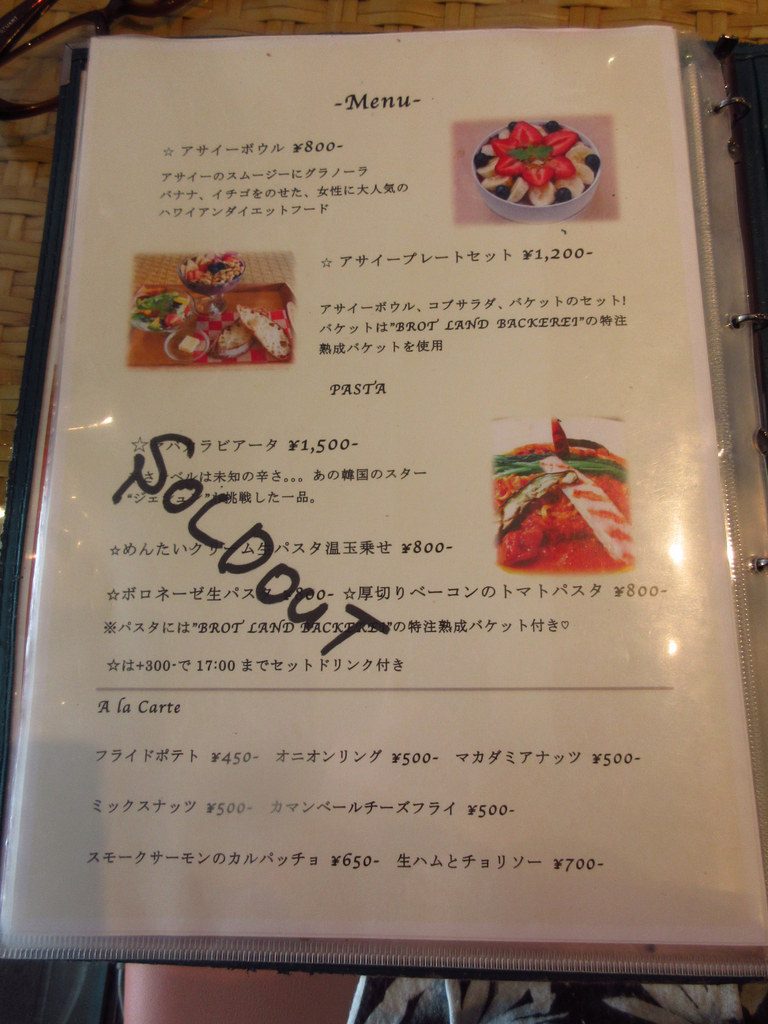 -Menu-
☆ アサイーボウル ¥800-
アサイーのスムージーにグラノーラ
バナナ、イチゴをのせた、女性に大人気の
ハワイアンダイエットフード
☆ アサイープレートセット ¥1,200-
アサイーボウル、コブサラダ、バケットのセット!
バケットは"BROT LAND BACKEREI"の特注
熟成バケットを使用
PASTA
☆ ラビアータ ¥1,500-
ベルは未知の辛さ。。。あの韓国のスター
挑戦した一品。
SOLDOUT
☆めんたいクリーム生パスタ温玉乗せ ¥800-
☆ボロネーゼ生パスタ ¥800- ☆厚切りベーコンのトマトパスタ ¥800-
※パスタには"BROT LAND BACKEREI"の特注熟成バケット付き♡
☆は+300-で 17:00 までセットドリンク付き
A la Carte
フライドポテト ¥450- オニオンリング ¥500- マカダミアナッツ ¥500-
ミックスナッツ ¥500- カマンベールチーズフライ ¥500-
スモークサーモンのカルパッチョ ¥650- 生ハムとチョリソー ¥700-